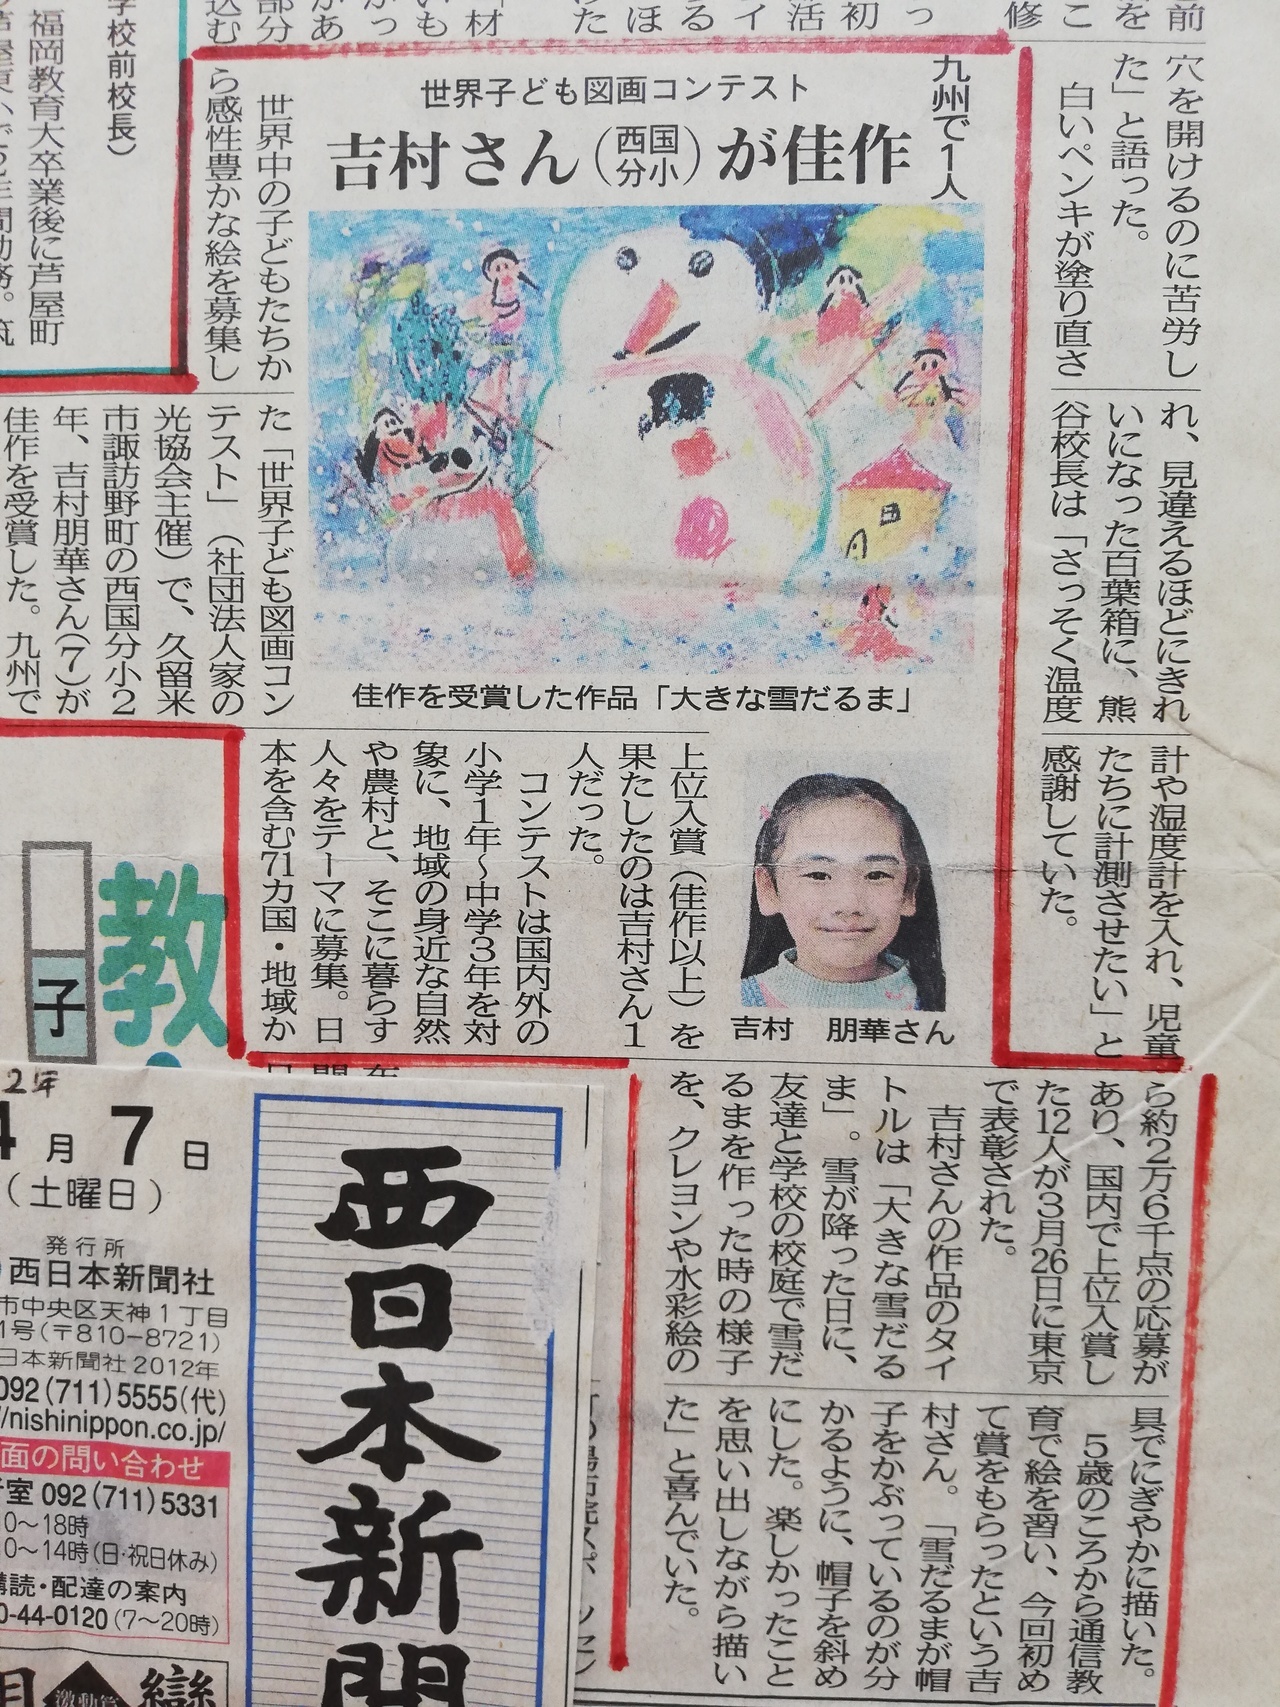 穴を開けるのに苦労し
た」と語った。
白いペンキが塗り直さ
れ、見違えるほどにきれ
いになった百葉箱に、熊
谷校長は「さっそく温度
計や湿度計を入れ、児童
たちに計測させたい」と
感謝していた。
九州で1人
世界子ども図画コンテスト
吉村さん(西国分小)が佳作
佳作を受賞した作品「大きな雪だるま」
世界中の子どもたちか
ら感性豊かな絵を募集し
た「世界子ども図画コン
テスト」(社団法人家の
光協会主催)で、久留米
市諏訪野町の西国分小2
年、吉村朋華さん(7)が
佳作を受賞した。九州で
上位入賞(佳作以上)を
果たしたのは吉村さん1
人だった。
コンテストは国内外の
小学1年〜中学3年を対
象に、地域の身近な自然
や農村と、そこに暮らす
人々をテーマに募集。日
本を含む71カ国・地域か
吉村 朋華さん
ら約2万6千点の応募が
あり、国内で上位入賞し
た12人が3月26日に東京
で表彰された。
吉村さんの作品のタイ
トルは「大きな雪だる
ま」。雪が降った日に、
友達と学校の校庭で雪だ
るまを作った時の様子
を、クレヨンや水彩絵の
具でにぎやかに描いた。
5歳のころから通信教
育で絵を習い、今回初め
て賞をもらったという吉
村さん。「雪だるまが帽
子をかぶっているのが分
かるように、帽子を斜め
にした。楽しかったこと
を思い出しながら描い
た」と喜んでいた。
学校前校長)
福岡教育大卒業後に芦屋町
教
子
2年
4月7日
(土曜日)
発行所
西日本新聞社
市中央区天神1丁目
1号(〒810-8721)
日本新聞社 2012年
092(711)5555(代)
//nishinippon.co.jp/
面の問い合わせ
室 092(711)5331
0〜18時
0〜14時(日・祝日休み)
購読・配達の案内
0-44-0120(7〜20時)
激動
西日本新聞